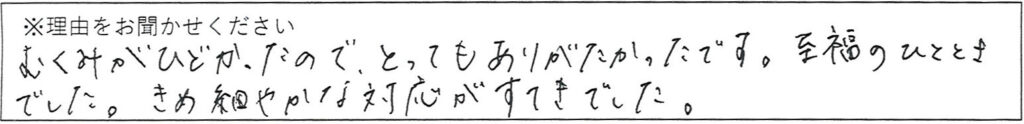 ※理由をお聞かせください
むくみがひどかったので、とってもありがたかったです。至福のひととき
でした。きめ細やかな対応がすてきでした。